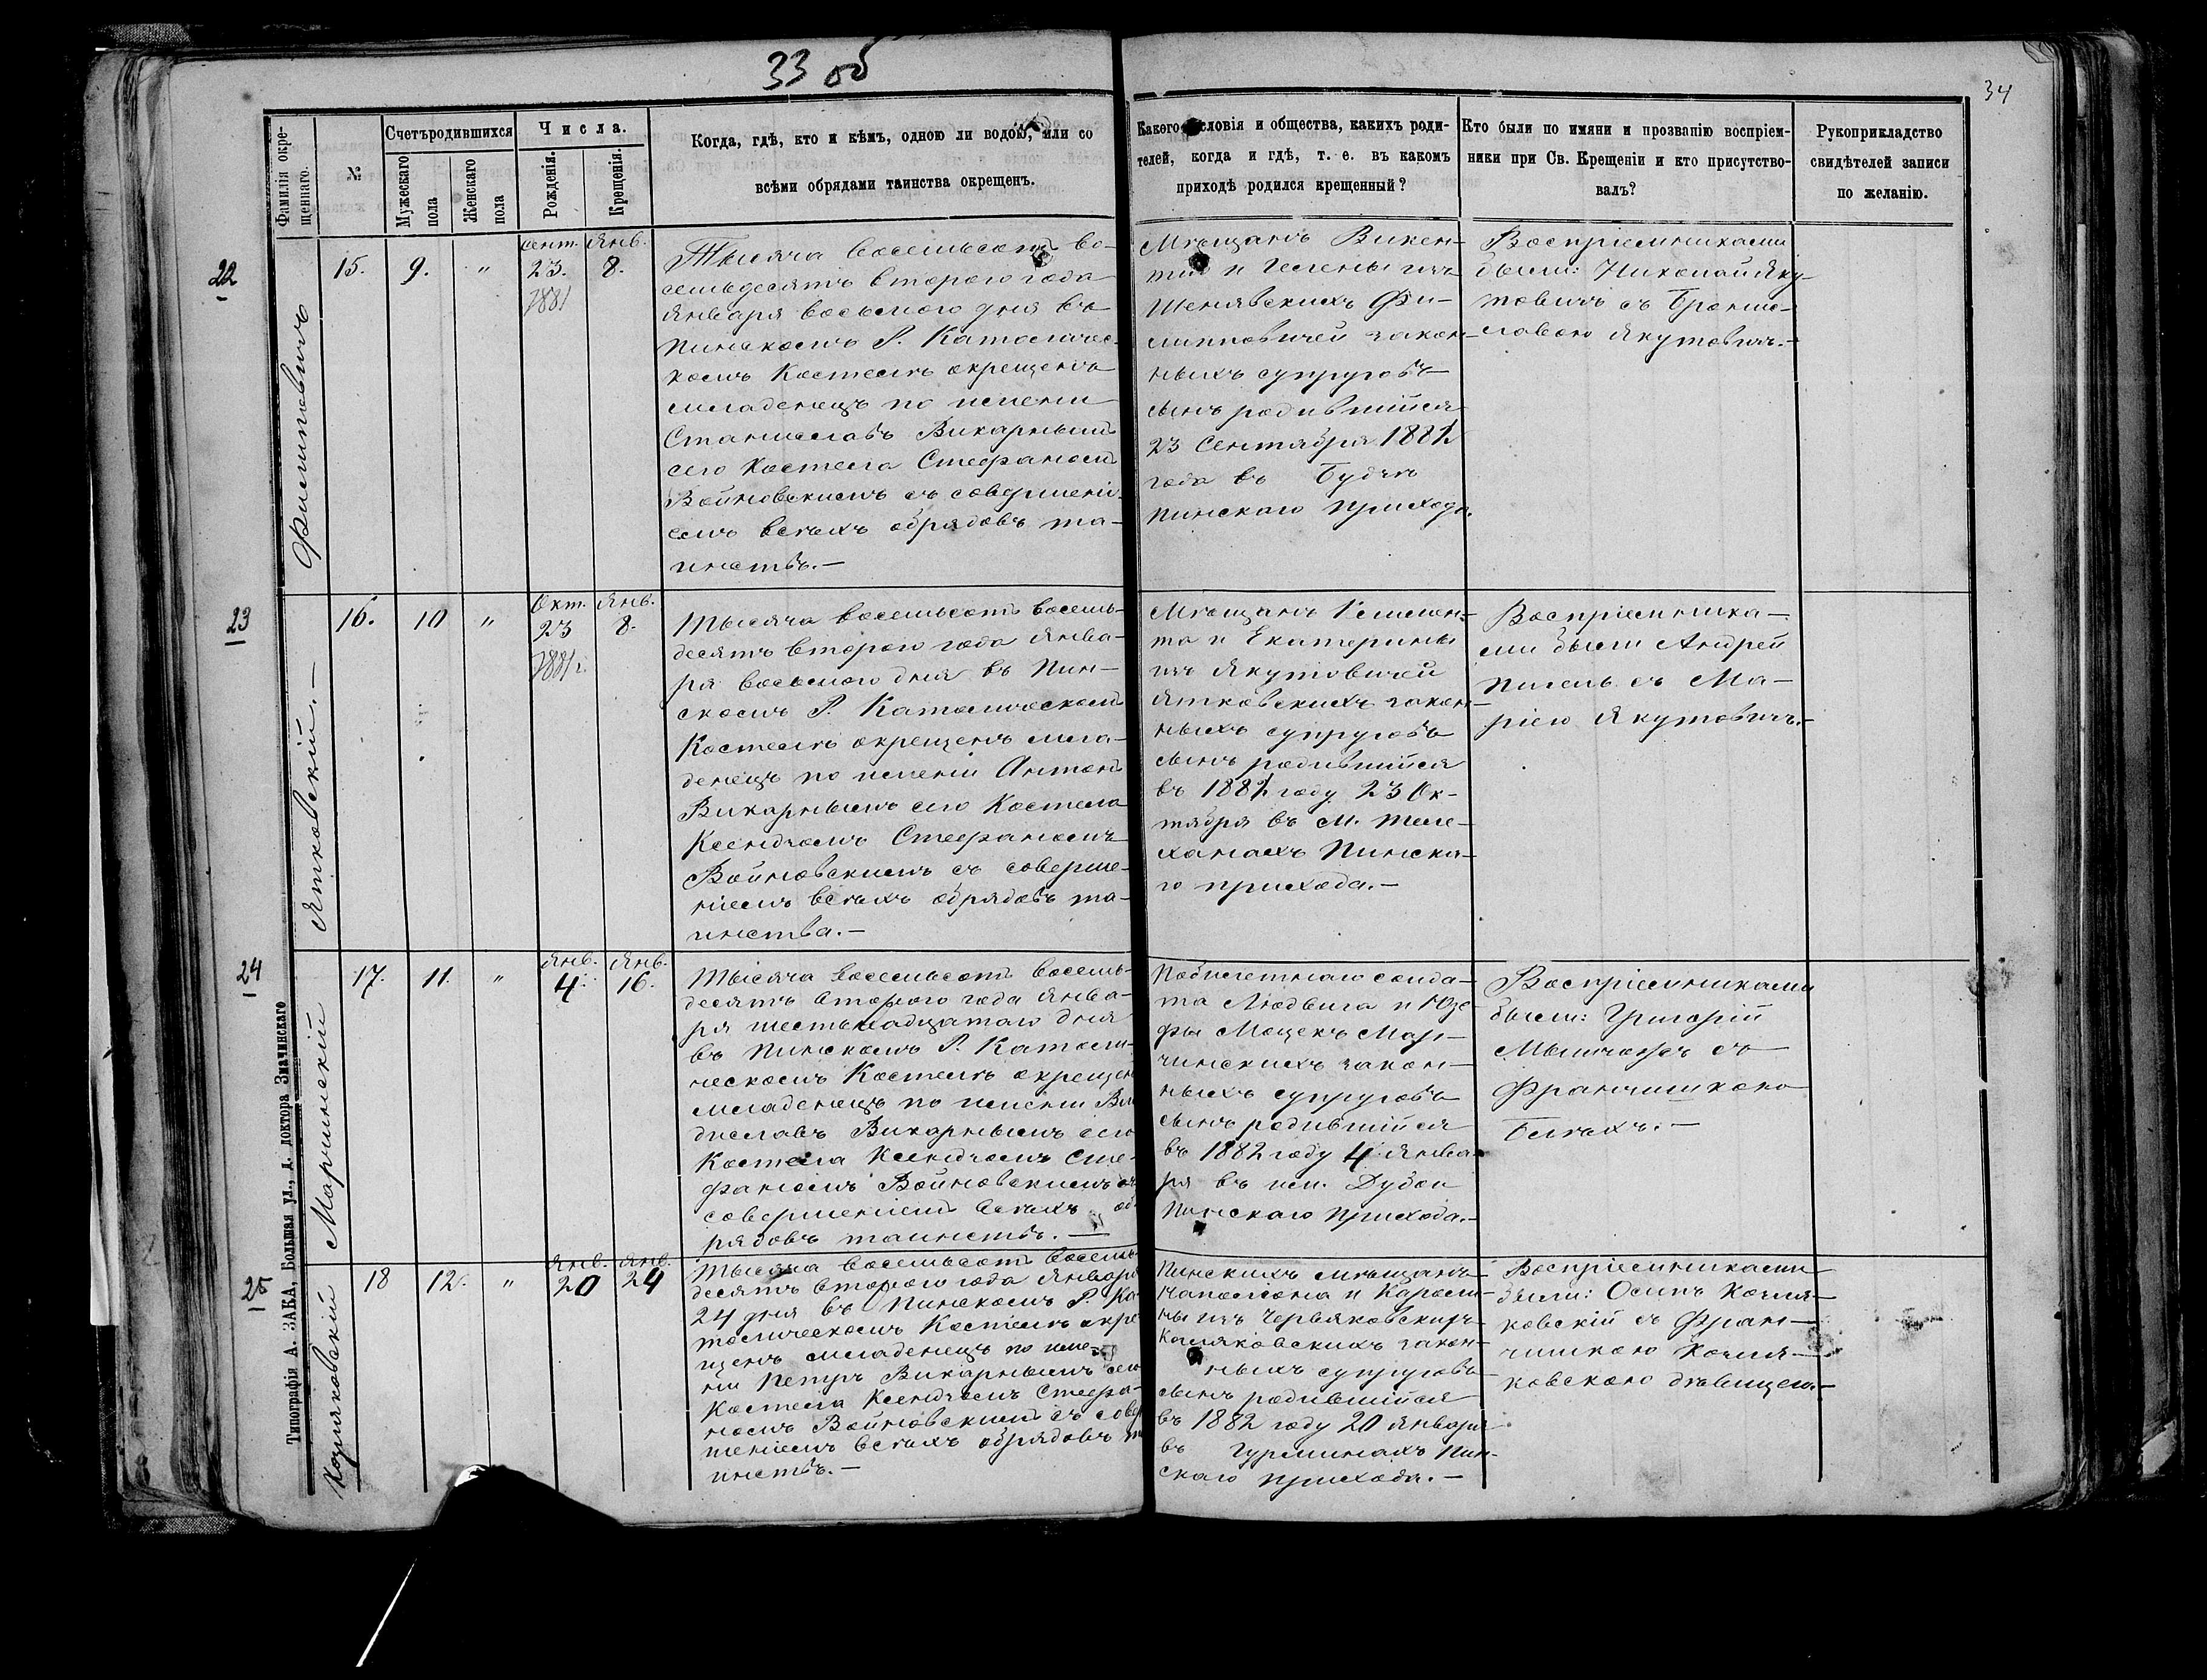 33 об
34
Фамилія окре-
щеннаго.
№
Счетъ родившихся
Мужескаго
пола
Женскаго
пола
Числа.
Рожденія.
Крещенія.
Когда, гдѣ, кто и кѣмъ, одною ли водою, или со
всѣми обрядами таинства окрещенъ.
Какого сословія и общества, какихъ роди-
телей, когда и гдѣ, т. е. въ какомъ
приходѣ родился крещенный?
Кто были по имяни и прозванію воспріем-
ники при Св. Крещеніи и кто присутство-
валъ?
Рукоприкладство
свидѣтелей записи
по желанію.
22
Филипповичъ
15.
9.
"
Сент.
23.
1881
Янв.
8.
Тысяча восемьсотъ во-
семьдесятъ втораго года
Января восьмого дня въ
Пинскомъ Р. Католичес-
комъ Костелѣ окрещенъ
младенецъ по имени
Станиславъ Викарнымъ
сего Костела Стефаномъ
Войновскимъ съ совершені-
емъ всѣхъ обрядовъ та-
инствъ.—
Мѣщанъ Викен-
тія и Гелены изъ
Шенявскихъ Фи-
липповичей закон-
ныхъ супруговъ
сынъ родившійся
23 Сентября 1881
года въ Будѣ
Пинскаго прихода.
Воспріемниками
были: Николай Яку-
товичъ съ Брони-
славою Якутовичъ.—
23
Ятковскій.—
16.
10
"
Окт.
23
1881 г.
Янв.
8.
Тысяча восемьсотъ восемь-
десятъ втораго года Янва-
ря восьмого дня въ Пин-
скомъ Р. Католическомъ
Костелѣ окрещенъ мла-
денецъ по имени Антонъ
Викарнымъ сего Костела
Ксендзомъ Стефаномъ
Войновскимъ съ соверше-
ніемъ всѣхъ обрядовъ та-
инства.—
Мѣщанъ Климен-
та и Екатерины
изъ Якутовичей
Ятковскихъ закон-
ныхъ супруговъ
сынъ родившійся
въ 1881 году 23 Ок-
тября въ м. Теле-
ханахъ Пинска-
го прихода.—
Воспріемника-
ми были Андрей
съ Ма-
ріею Якутовичъ.—
24
Марчинскій
17.
11.
"
Янв.
4.
Янв.
16.
Тысяча восемьсотъ восемь-
десятъ втораго года Янва-
ря шестьнадцатаго дня
въ Пинскомъ Р. Католи-
ческомъ Костелѣ окрещен
младенецъ по имени Вла
диславъ Викарнымъ сего
Костела Ксендзомъ Сте-
фаномъ Войновскимъ съ
совершеніемъ всѣхъ об-
рядовъ таинствъ.—
солда-
та Людвига и Юзе
фы Мар-
чинскихъ закон-
ныхъ супруговъ
сынъ родившійся
въ 1882 году 4 Янва-
ря въ им. Дубои
Пинскаго прихода.—
Воспріемниками
были: Григорій
съ
Франчишкою
25
Козляковскій
18
12.
"
Янв.
20
Янв.
24
Тысяча восемьсотъ восемь-
десятъ втораго года Января
24 дня въ Пинскомъ Р. Ка-
толическомъ Костелѣ окре
щенъ младенецъ по име-
ни Петръ Викарнымъ сего
Костела Ксендзомъ Стефа-
номъ Войновскимъ съ совер
шеніемъ всѣхъ обрядовъ та
инствъ.—
Пинскихъ мѣщанъ
Наполеона и Кароли-
ны изъ Червяковскихъ
Козляковскихъ закон-
ныхъ супруговъ
сынъ родившійся
въ 1882 году 20 Января
въ Пин-
скаго прихода.—
Воспріемниками
были: Осипъ Козля-
ковскій съ Фран-
чишкою Козля-
ковскою дѣвицею.—
Типографія А. ЗАКА, Большая ул., д. доктора Значинскаго